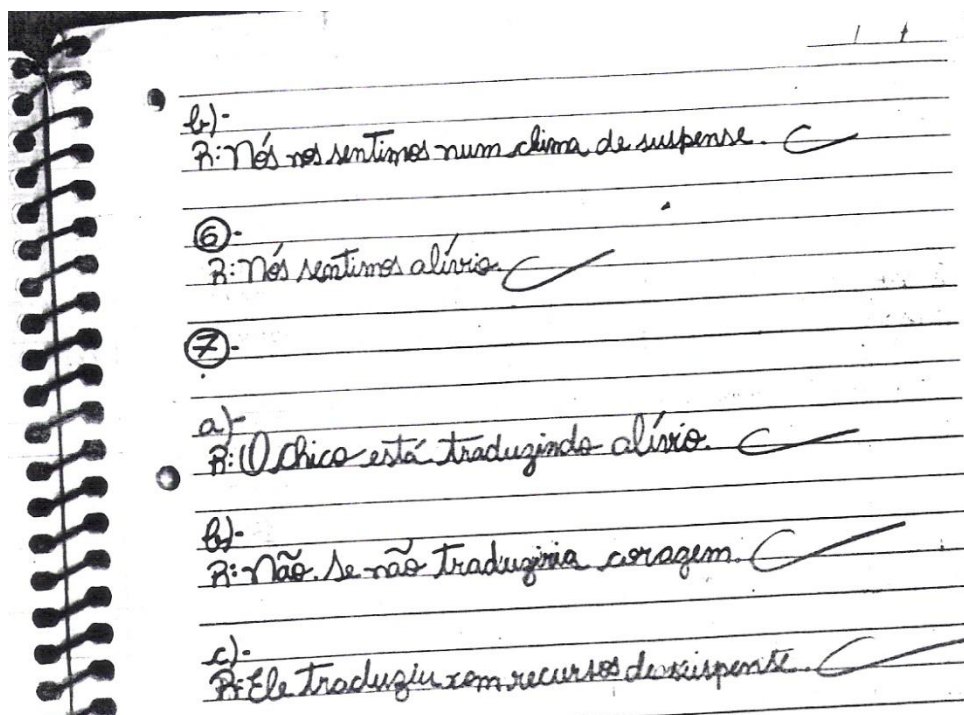 b)-
R: Nós nos sentimos num clima de suspense.
6-
R: Nós sentimos alívio.
7-
a)-
R: O Chico está traduzindo alívio.
b)-
R: Não. Se não traduziria coragem.
c)-
R: Ele traduziu com recursos de suspense.